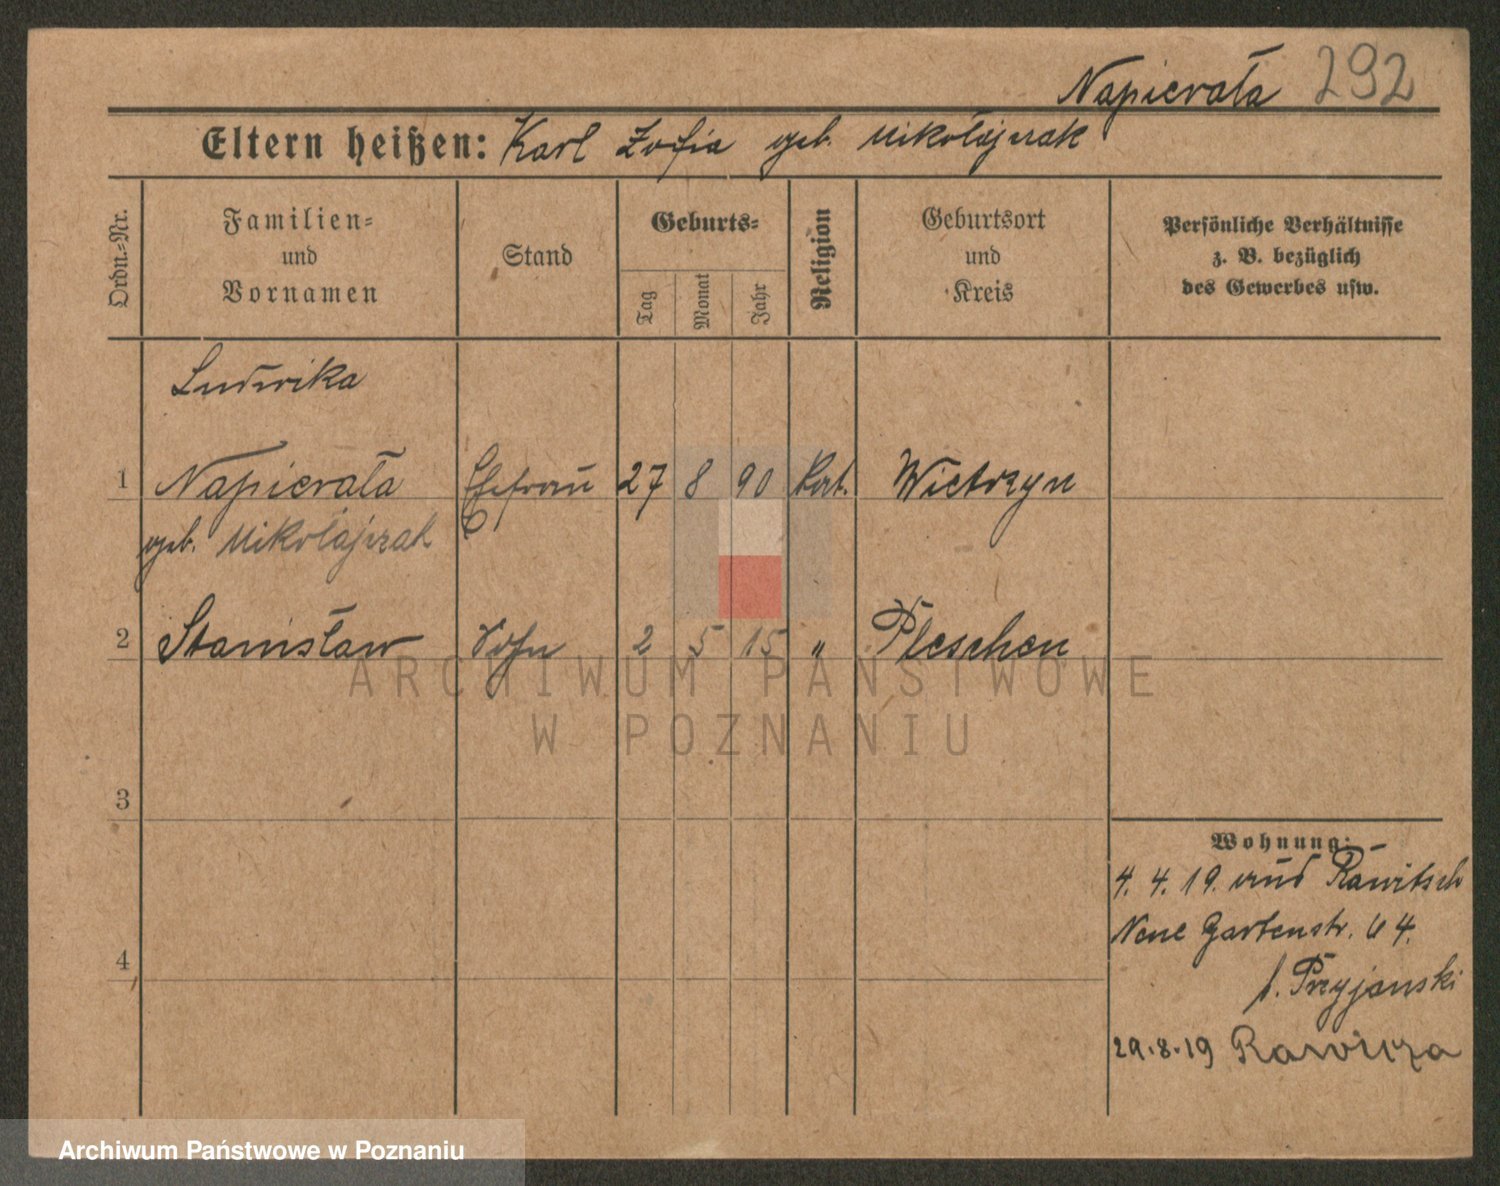 Napierała 292
Eltern heißen: Karl Zofia geb. Mikołajczak
Ordn.=Nr.
Familien=
und
Vornamen
Stand
Geburts=
Tag
Monat
Jahr
Religion
Geburtsort
und
Kreis
Persönliche Verhältnisse
z. B. bezüglich
des Gewerbes usw.
Ludwika
1 Napierała Ehefrau 27 8 90 Kat. Wietrzyn
geb. Mikołajczak
2 Stanisław Sohn 2 5 15 " Pleschen
ARCHIWUM PAŃSTWOWE
W POZNANIU
3
Wohnung:
4. 4. 19. aus Rawitsch
Neue Gartenstr. 64.
4
b. Przyjanski
29.8.19 Rawicza
Archiwum Państwowe w Poznaniu